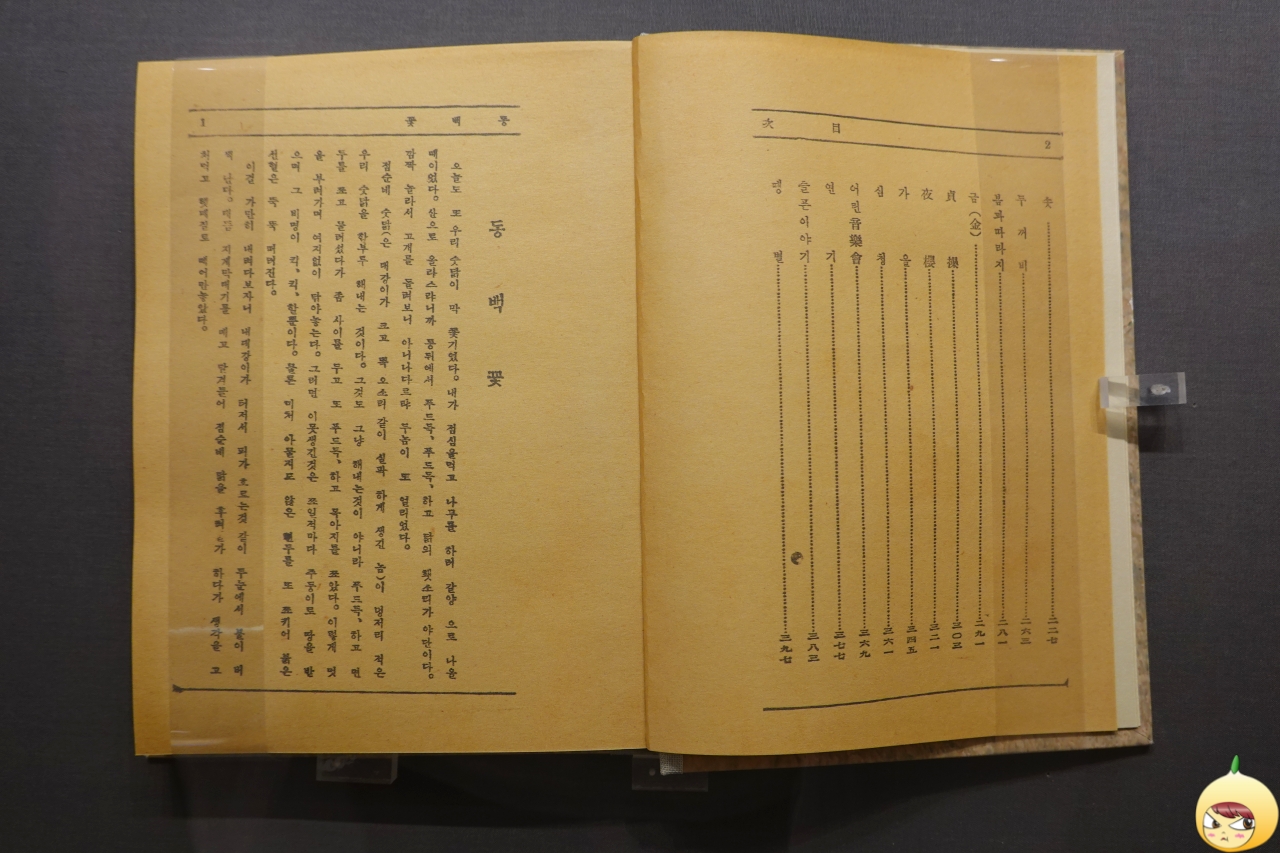 2
目 次
솟 二二七
두꺼비 二六三
봄과따라지 二八一
금(金) 二九一
貞操 三〇三
夜櫻 三二一
가을 三四五
심청 三六一
어린音樂會 三六九
연기 三七七
슬픈이야기 三八三
땡볕 三九七
동백꽃
1
동백꽃
오늘도 또 우리 숫닭이 막 쫓기었다。내가 점심을먹고 나무를 하러 갈양 으로 나올
때이었다。산으로 올라스랴니까 등뒤에서 푸드득、푸드득、하고 닭의 횃소리가 야단이다。
깜짝 놀라서 고개를 돌려보니 아니나다르랴 두놈이 또 얼리었다。
점순네 숫닭(은 대강이가 크고 똑 오소리 같이 실팍 하게 생긴 놈)이 덩저리 적은
우리 숫닭을 함부루 해내는 것이다。그것도 그냥 해내는것이 아니라 푸드득、하고 면
두를 쪼고 물러섰다가 좀 사이를 두고 또 푸드득、하고 목아지를 쪼았다。이렇게 멋
을 부려가며 여지없이 닦아놓는다。그러면 이못생긴것은 쪼일적마다 주둥이로 땅을 받
으며 그 비명이 킥、킥、할뿐이다。물론 미처 아물지도 않은 면두를 또 쪼키어 붉은
선혈은 뚝 뚝 떠러진다。
이걸 가만히 내려다보자니 내대강이가 터저서 피가 흐르는것 같이 두눈에서 불이 버
쩍 난다。대뜸 지게막메기를 메고 달겨들어 점순네 닭을 후려 스가 하다가 생각을 고
처먹고 헛매질로 떼어만놓았다。